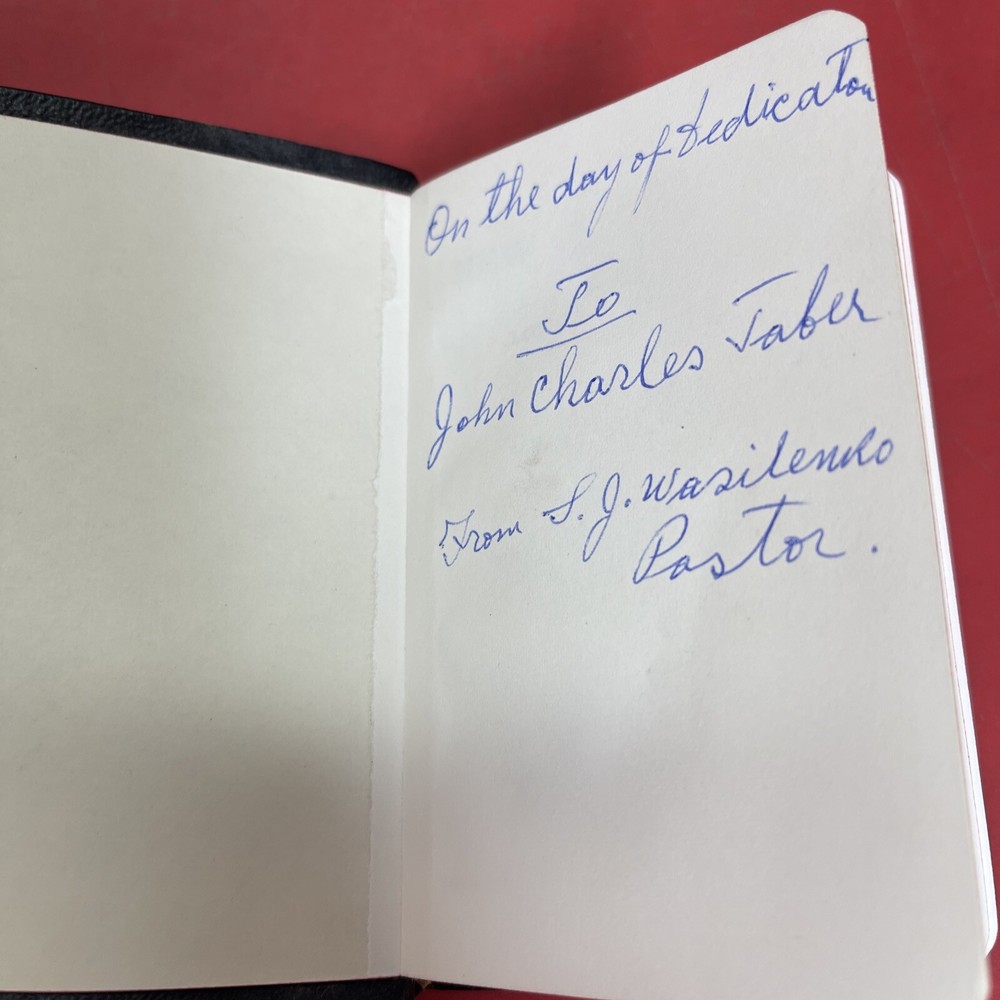 On the day of dedicaton
To
John Charles Taber
From S. J. Wasilenko
Pastor.